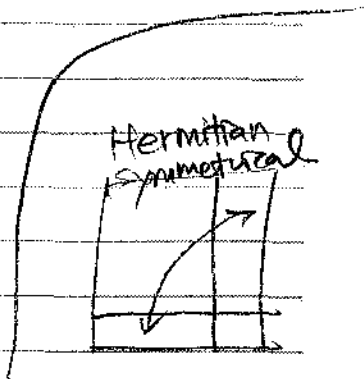 Hermitian
Symmetrical